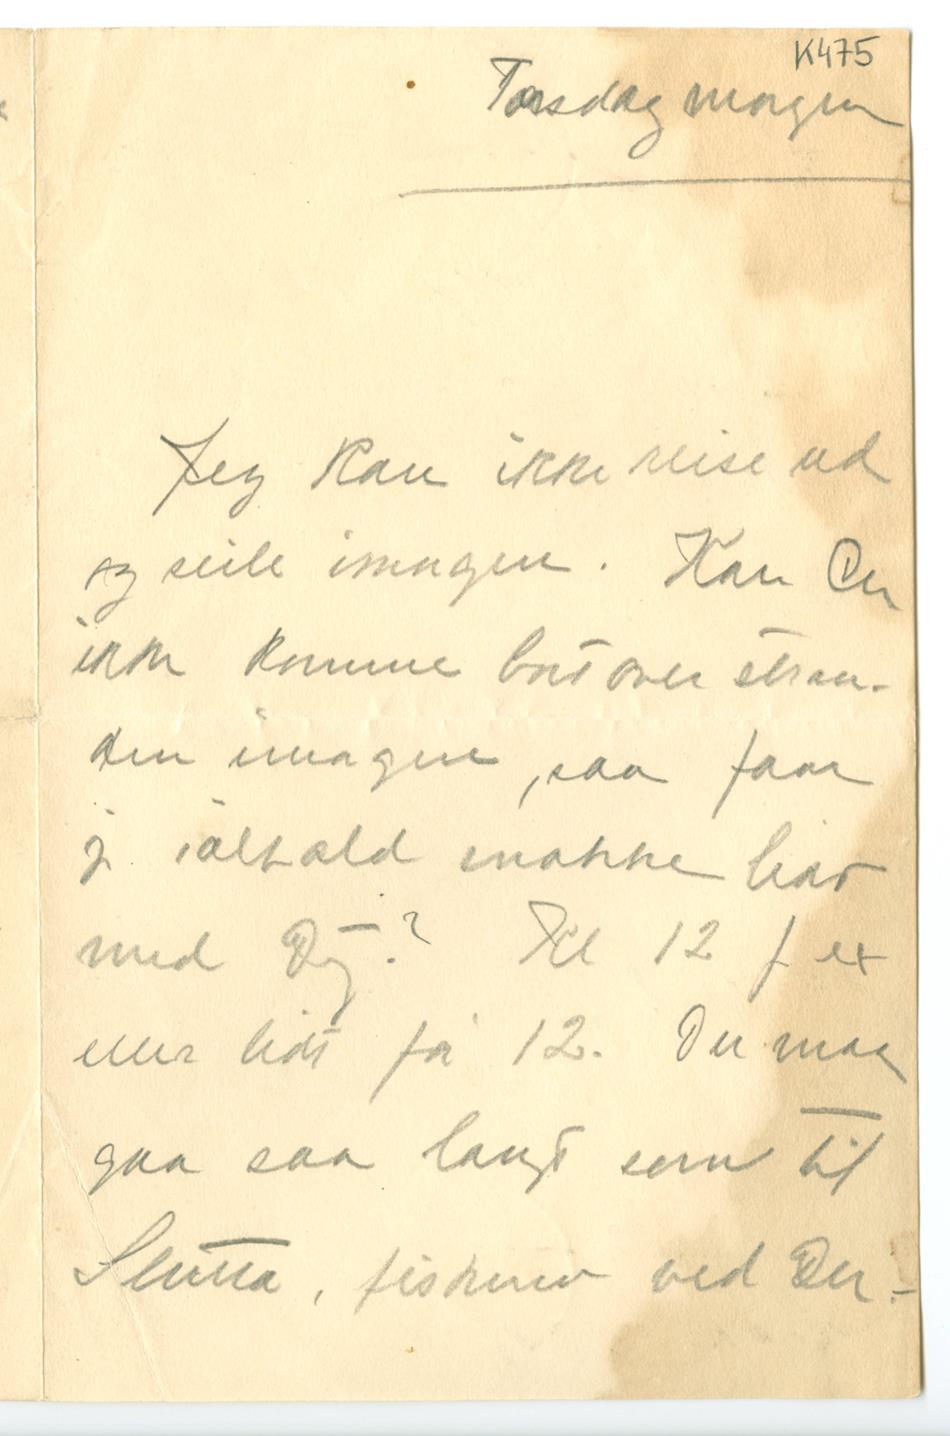 K475
Torsdag morgen
Jeg kan ikke reise ud
og seile imorgen. Kan Du
ikke komme bortover stran-
den imorgen, saa faar
j. ialfald snakke lidt
med Dig? Kl 12 f ex
eller lidt før 12. Du maa
gaa saa langt som til
Slutta, fiskerne ved Der-